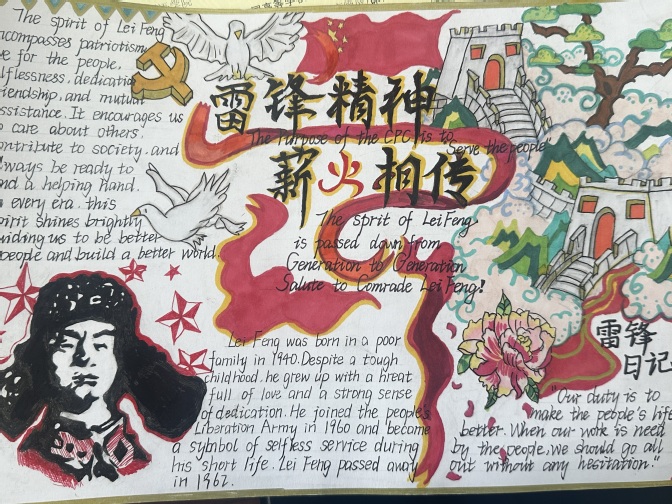 The spirit of Lei Feng
ncompasses patriotism
e for the people.
lflessness, dedicatio
iendship, and mutual
ssistance. It encourages us
o care about others.
ontribute to society, and
lways be ready to
nd a helping hand.
n every era, this
pirit shines brightly
uiding us to be better
people and build a better world.
雷锋精神
The Purpose of the CPC is to
"Serve the people"
薪火相传
The sprit of LeiFeng
is passed down from
Generation to Generation
Salute to Comrade LeiFeng!
Lei Feng was born in a poor
family in 1940. Despite a tough
childhood, he grew up with a hreat
full of love and a strong sense
of dedication. He joined the people's
Liberation Army in 1960 and become
a symbol of selfless service during
his short life. Lei Feng passed away
in 1962.
雷锋
日记
"Our duty is to
make the people's life
better. When our work is need
by the people, we should go all
out without any hesitation."